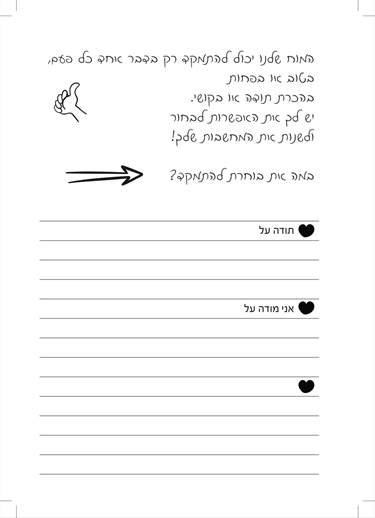 המוח שלנו יכול להתמקד רק בדבר אחד כל פעם,
בטוב או בפחות
בהכרת תודה או בקושי.
יש לך את האפשרות לבחור
ולשנות את המחשבות שלך!
במה את בוחרת להתמקד?
תודה על
אני מודה על